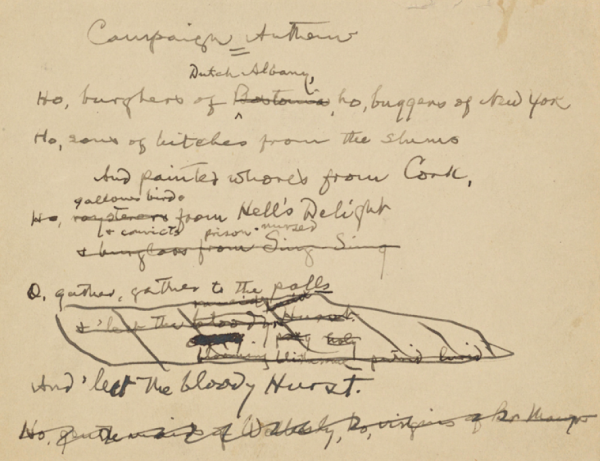 Campaign Anthem
Dutch Albany,
Ho, burghers of ho, buggers of New York
Ho, sons of bitches from the slums
And painted whores from Cork,
gallows birds
Ho, roysterers from Hell's Delight
& convicts prison-nursed
& burglars from Sing Sing
O, gather, gather to the polls
& 'lect the bloody Hurst
putrid
And 'lect the bloody Hurst.
Ho, of ho, virgins of